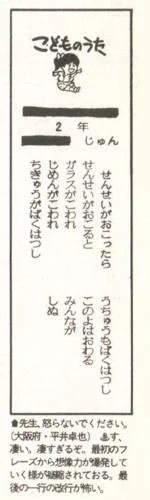 こどものうた
2年
じゅん
せんせいがおこったら
せんせいがおこると
ガラスがこわれ
じめんがこわれ
ちきゅうがばくはつし
うちゅうもばくはつし
このよはおわる
みんなが
しぬ
●先生、怒らないでください。
(大阪府・平井卓也)  す、
凄い。凄すぎるぞ。最初のフ
レーズから想像力が爆発して
いく様が凝縮されておる。最
後の一行の改行が怖い。